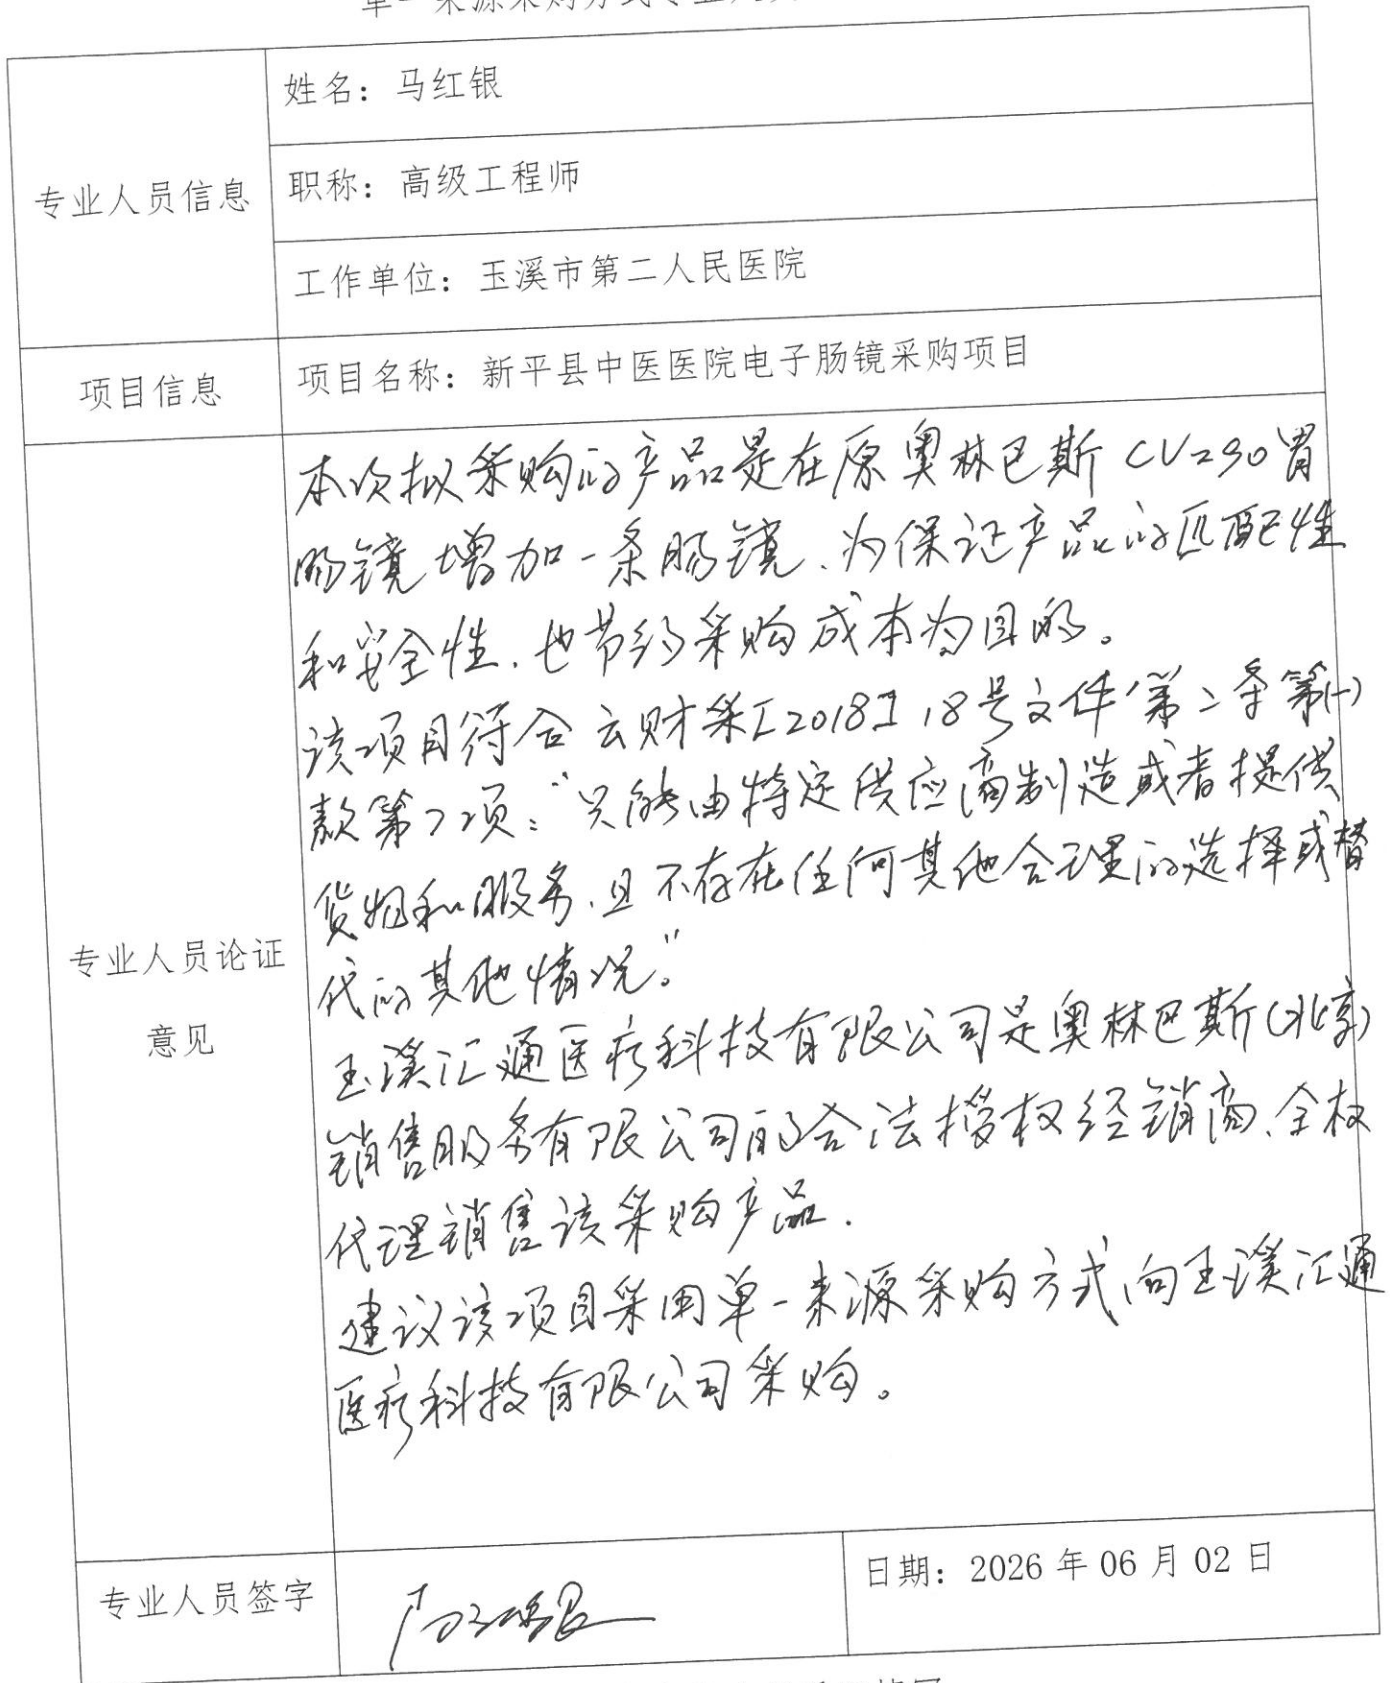 单一来源采购方式专业人员
专业人员信息
姓名：马红银
职称：高级工程师
工作单位：玉溪市第二人民医院
项目信息
项目名称：新平县中医医院电子肠镜采购项目
专业人员论证
意见
本次拟采购的产品是在原奥林巴斯CV290胃
肠镜增加一条肠镜、为保证产品的匹配性
和安全性，也节约采购成本为目的。
该项目符合云财采[2018]18号文件第二条第(一)
款第7项：“只能由特定供应商制造或者提供
货物和服务，且不存在任何其他合理的选择或替
代的其他情况。”
玉溪汇通医疗科技有限公司是奥林巴斯(北京)
销售服务有限公司的合法授权经销商、全权
代理销售该采购产品.
建议该项目采用单一来源采购方式向玉溪汇通
医疗科技有限公司采购。
专业人员签字
马红银
日期：2026 年 06 月 02 日